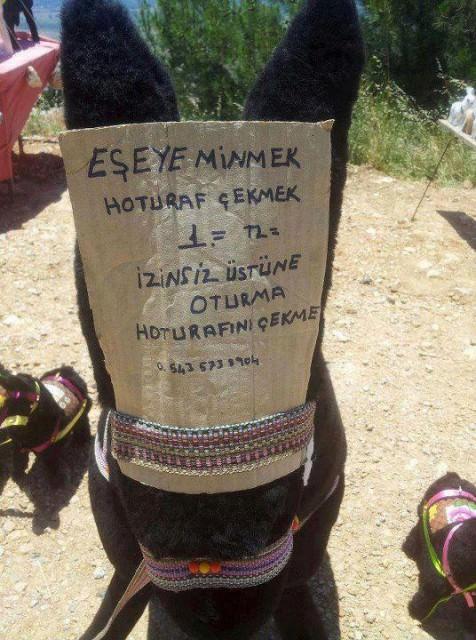 EŞEYE MİNMEK
HOTURAF ÇEKMEK
1.= TL=
İZİNSİZ ÜSTÜNE
OTURMA
HOTURAFINI ÇEKME
0.543 573 8904